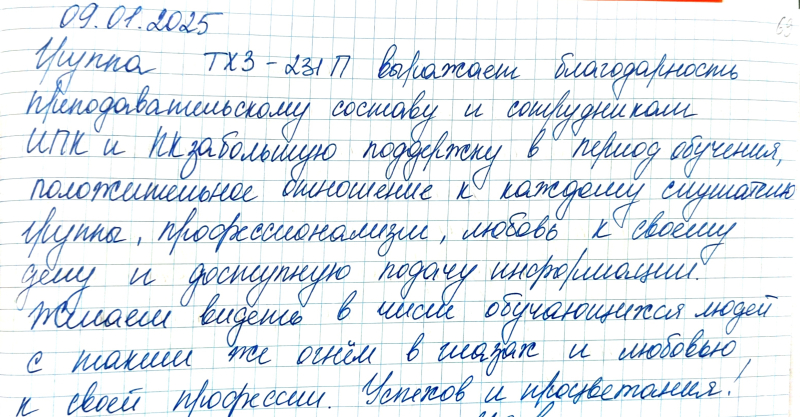 09.01.2025
63
Группа ТХЗ-231П выражает благодарность
преподавательскому составу и сотрудникам
ИПК и ПК за большую поддержку в период обучения,
положительное отношение к каждому слушателю
группы, профессионализм, любовь к своему
делу и доступную подачу информации.
Желаем видеть в числе обучающихся людей
с таким же огнём в глазах и любовью
к своей профессии. Успехов и процветания!